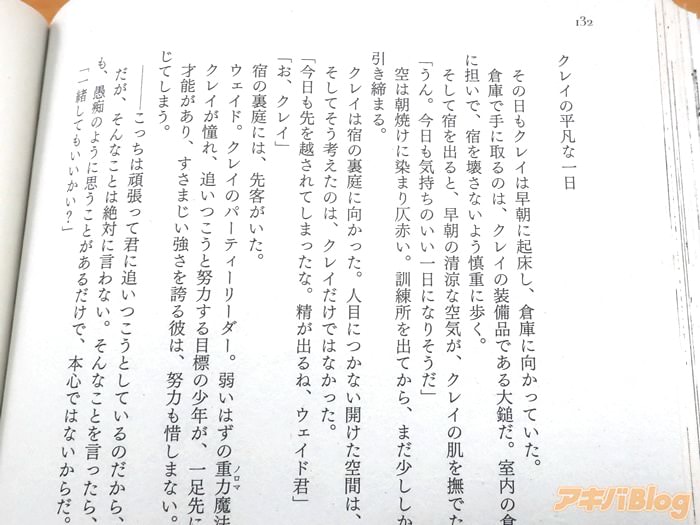 132
クレイの平凡な一日
その日もクレイは早朝に起床し、倉庫に向かっていた。
倉庫で手に取るのは、クレイの装備品である大鎚だ。室内の倉
に担いで、宿を壊さないよう慎重に歩く。
そして宿を出ると、早朝の清涼な空気が、クレイの肌を撫でた
「うん。今日も気持ちのいい一日になりそうだ」
空は朝焼けに染まり仄赤い。訓練所を出てから、まだ少ししか
引き締まる。
クレイは宿の裏庭に向かった。人目につかない開けた空間は、
そしてそう考えたのは、クレイだけではなかった。
「今日も先を越されてしまったな。精が出るね、ウェイド君」
「お、クレイ」
宿の裏庭には、先客がいた。
ウェイド。クレイのパーティーリーダー。弱いはずの重力魔法
ノロマ
クレイが憧れ、追いつこうと努力する目標の少年が、一足先に
才能があり、すさまじい強さを誇る彼は、努力も惜しまない。
じてしまう。
――こっちは頑張って君に追いつこうとしているのだから、
だが、そんなことは絶対に言わない。そんなことを言ったら、
も、愚痴のように思うことがあるだけで、本心ではないからだ。
「一緒してもいいかい？」
アキバBlog